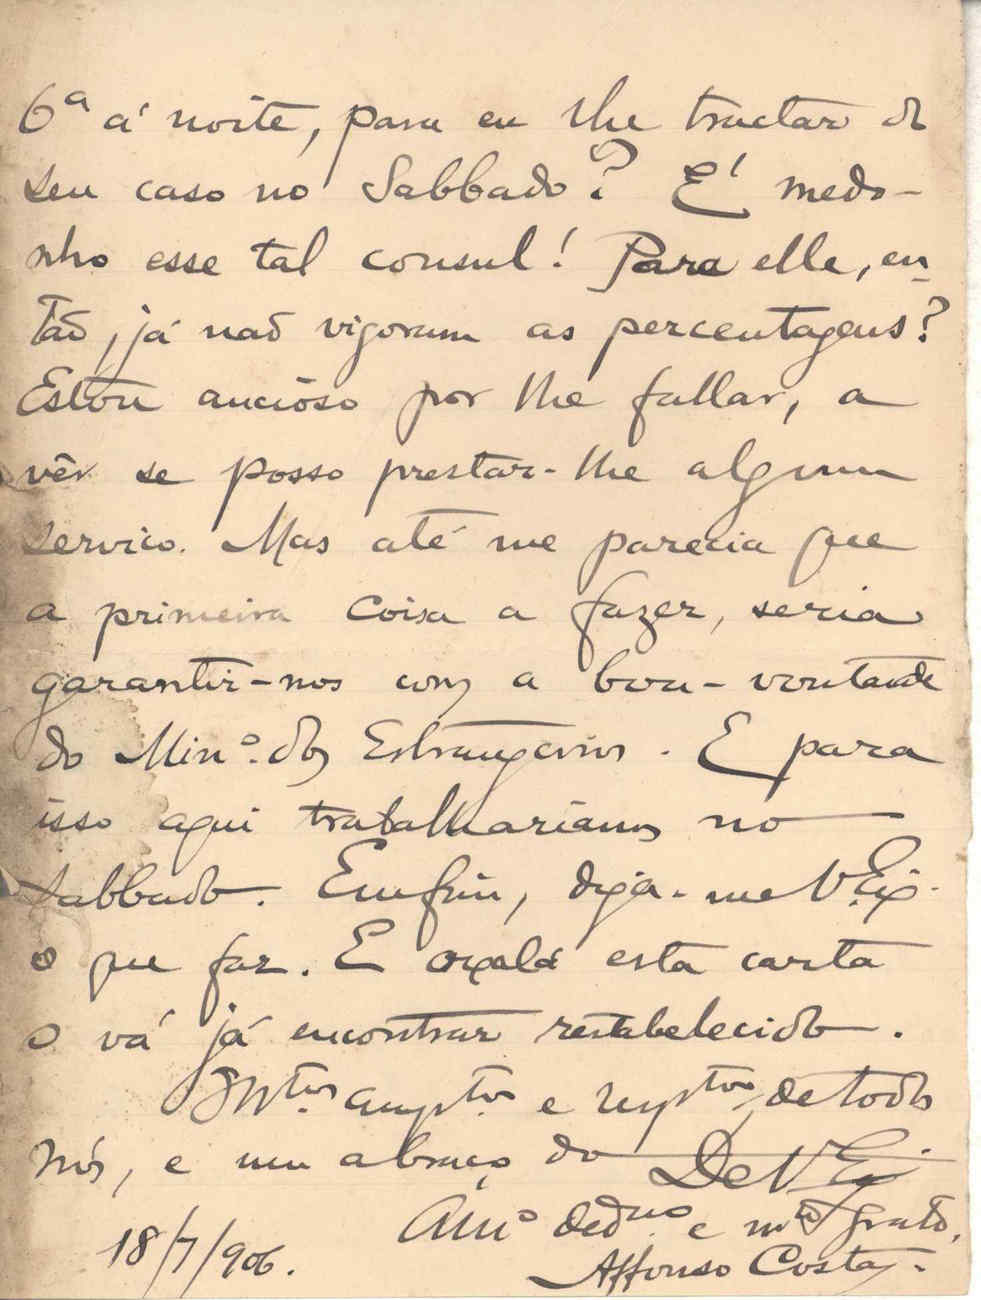 6ª á noite, para eu lhe tractar do
seu caso no Sabbado? É medo-
nho esse tal consul! Para elle, en-
tão, já não vigoram as percentagens?
Estou ancioso por lhe fallar, a
vêr se posso prestar-lhe algum
serviço. Mas até me parecia que
a primeira coisa a fazer, seria
garantir-nos com a boa-vontade
do Minº. dos Estrangeiros. E para
isso aqui trabalhariamos no
sabbado. Emfim, diga-me V. Exª.
o que faz. E oxalá esta carta
o vá já encontrar restabelecido.
Mtos. e de todos
nós, e um abraço do De V. Ex
Amº dedmo e mto grato,
18/7/906. Affonso Costa.